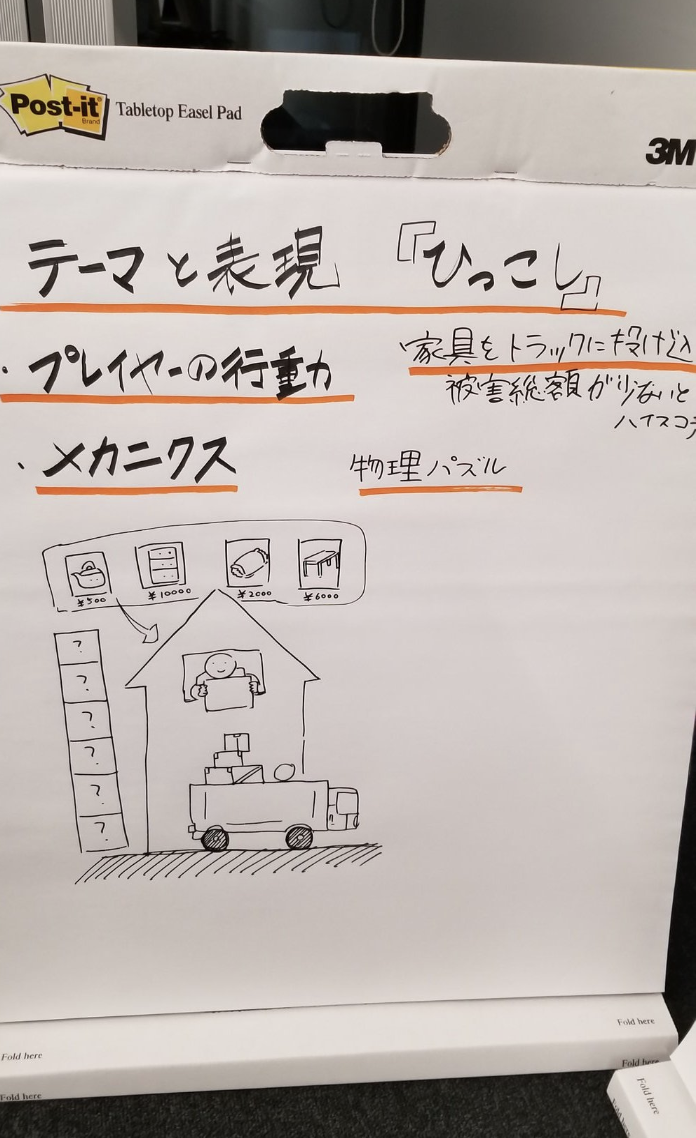 Post-it
Brand
Tabletop Easel Pad
3M
テーマと表現 『ひっこし』
・プレイヤーの行動
・家具をトラックに投げ込
被害総額が少ないと
ハイスコ
・メカニクス
物理パズル
¥500 ¥10000 ¥2000 ¥6000
?
?
?
?
?
?
Fold here
Fold here
Fold here
Fold here
Fold here